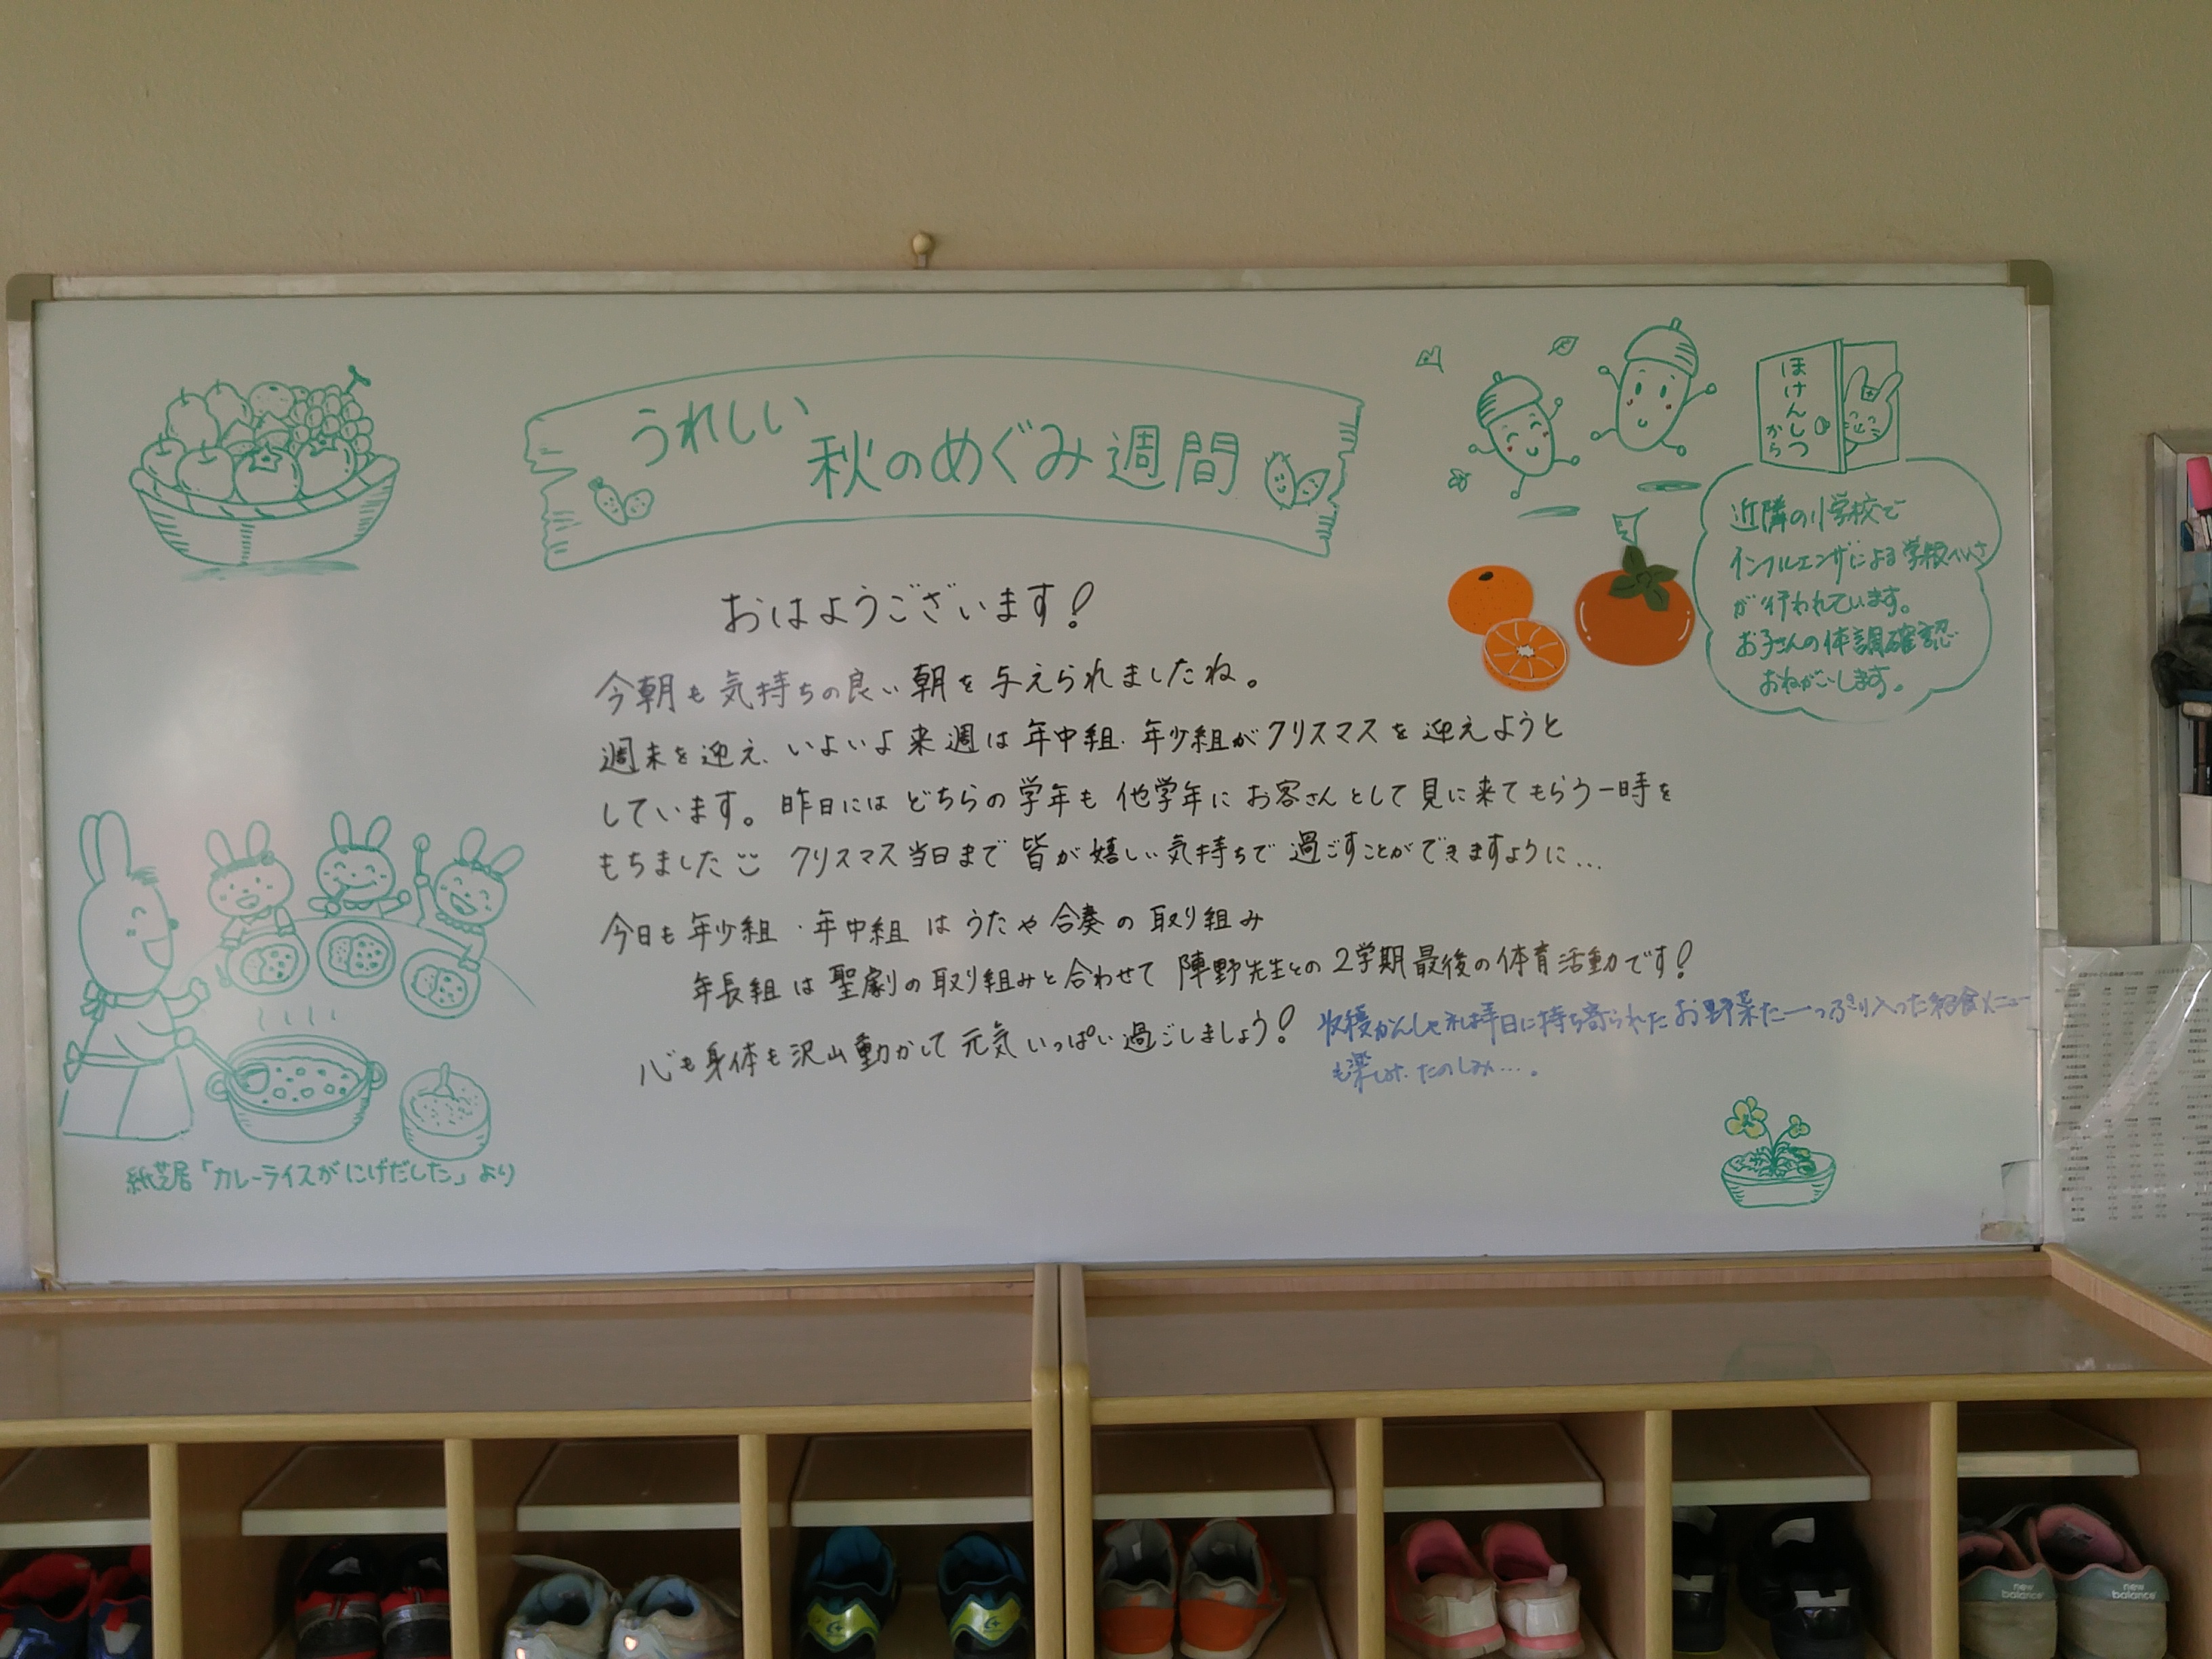 うれしい
秋のめぐみ週間
ほけんしつ
から
近隣の小学校で
インフルエンザによる学級へいさ
が行われています。
お子さんの体調確認
おねがいします。
おはようございます!
今朝も気持ちの良い朝を与えられましたね。
週末を迎え、いよいよ来週は年中組、年少組がクリスマスを迎えようと
しています。昨日にはどちらの学年も他学年にお客さんとして見に来てもらう一時を
もちました クリスマス当日まで皆が嬉しい気持ちで過ごすことができますように…
今日も年少組・年中組はうたや合奏の取り組み
年長組は聖劇の取り組みと合わせて陣野先生との2学期最後の体育活動です!
心も身体も沢山動かして元気いっぱい過ごしましょう!
収穫かんしゃ礼拝日に持ち寄られたお野菜たーっぷり入った和食メニュー
たのしみ…。
紙芝居「カレーライスがにげだした」より
new balance
new balance